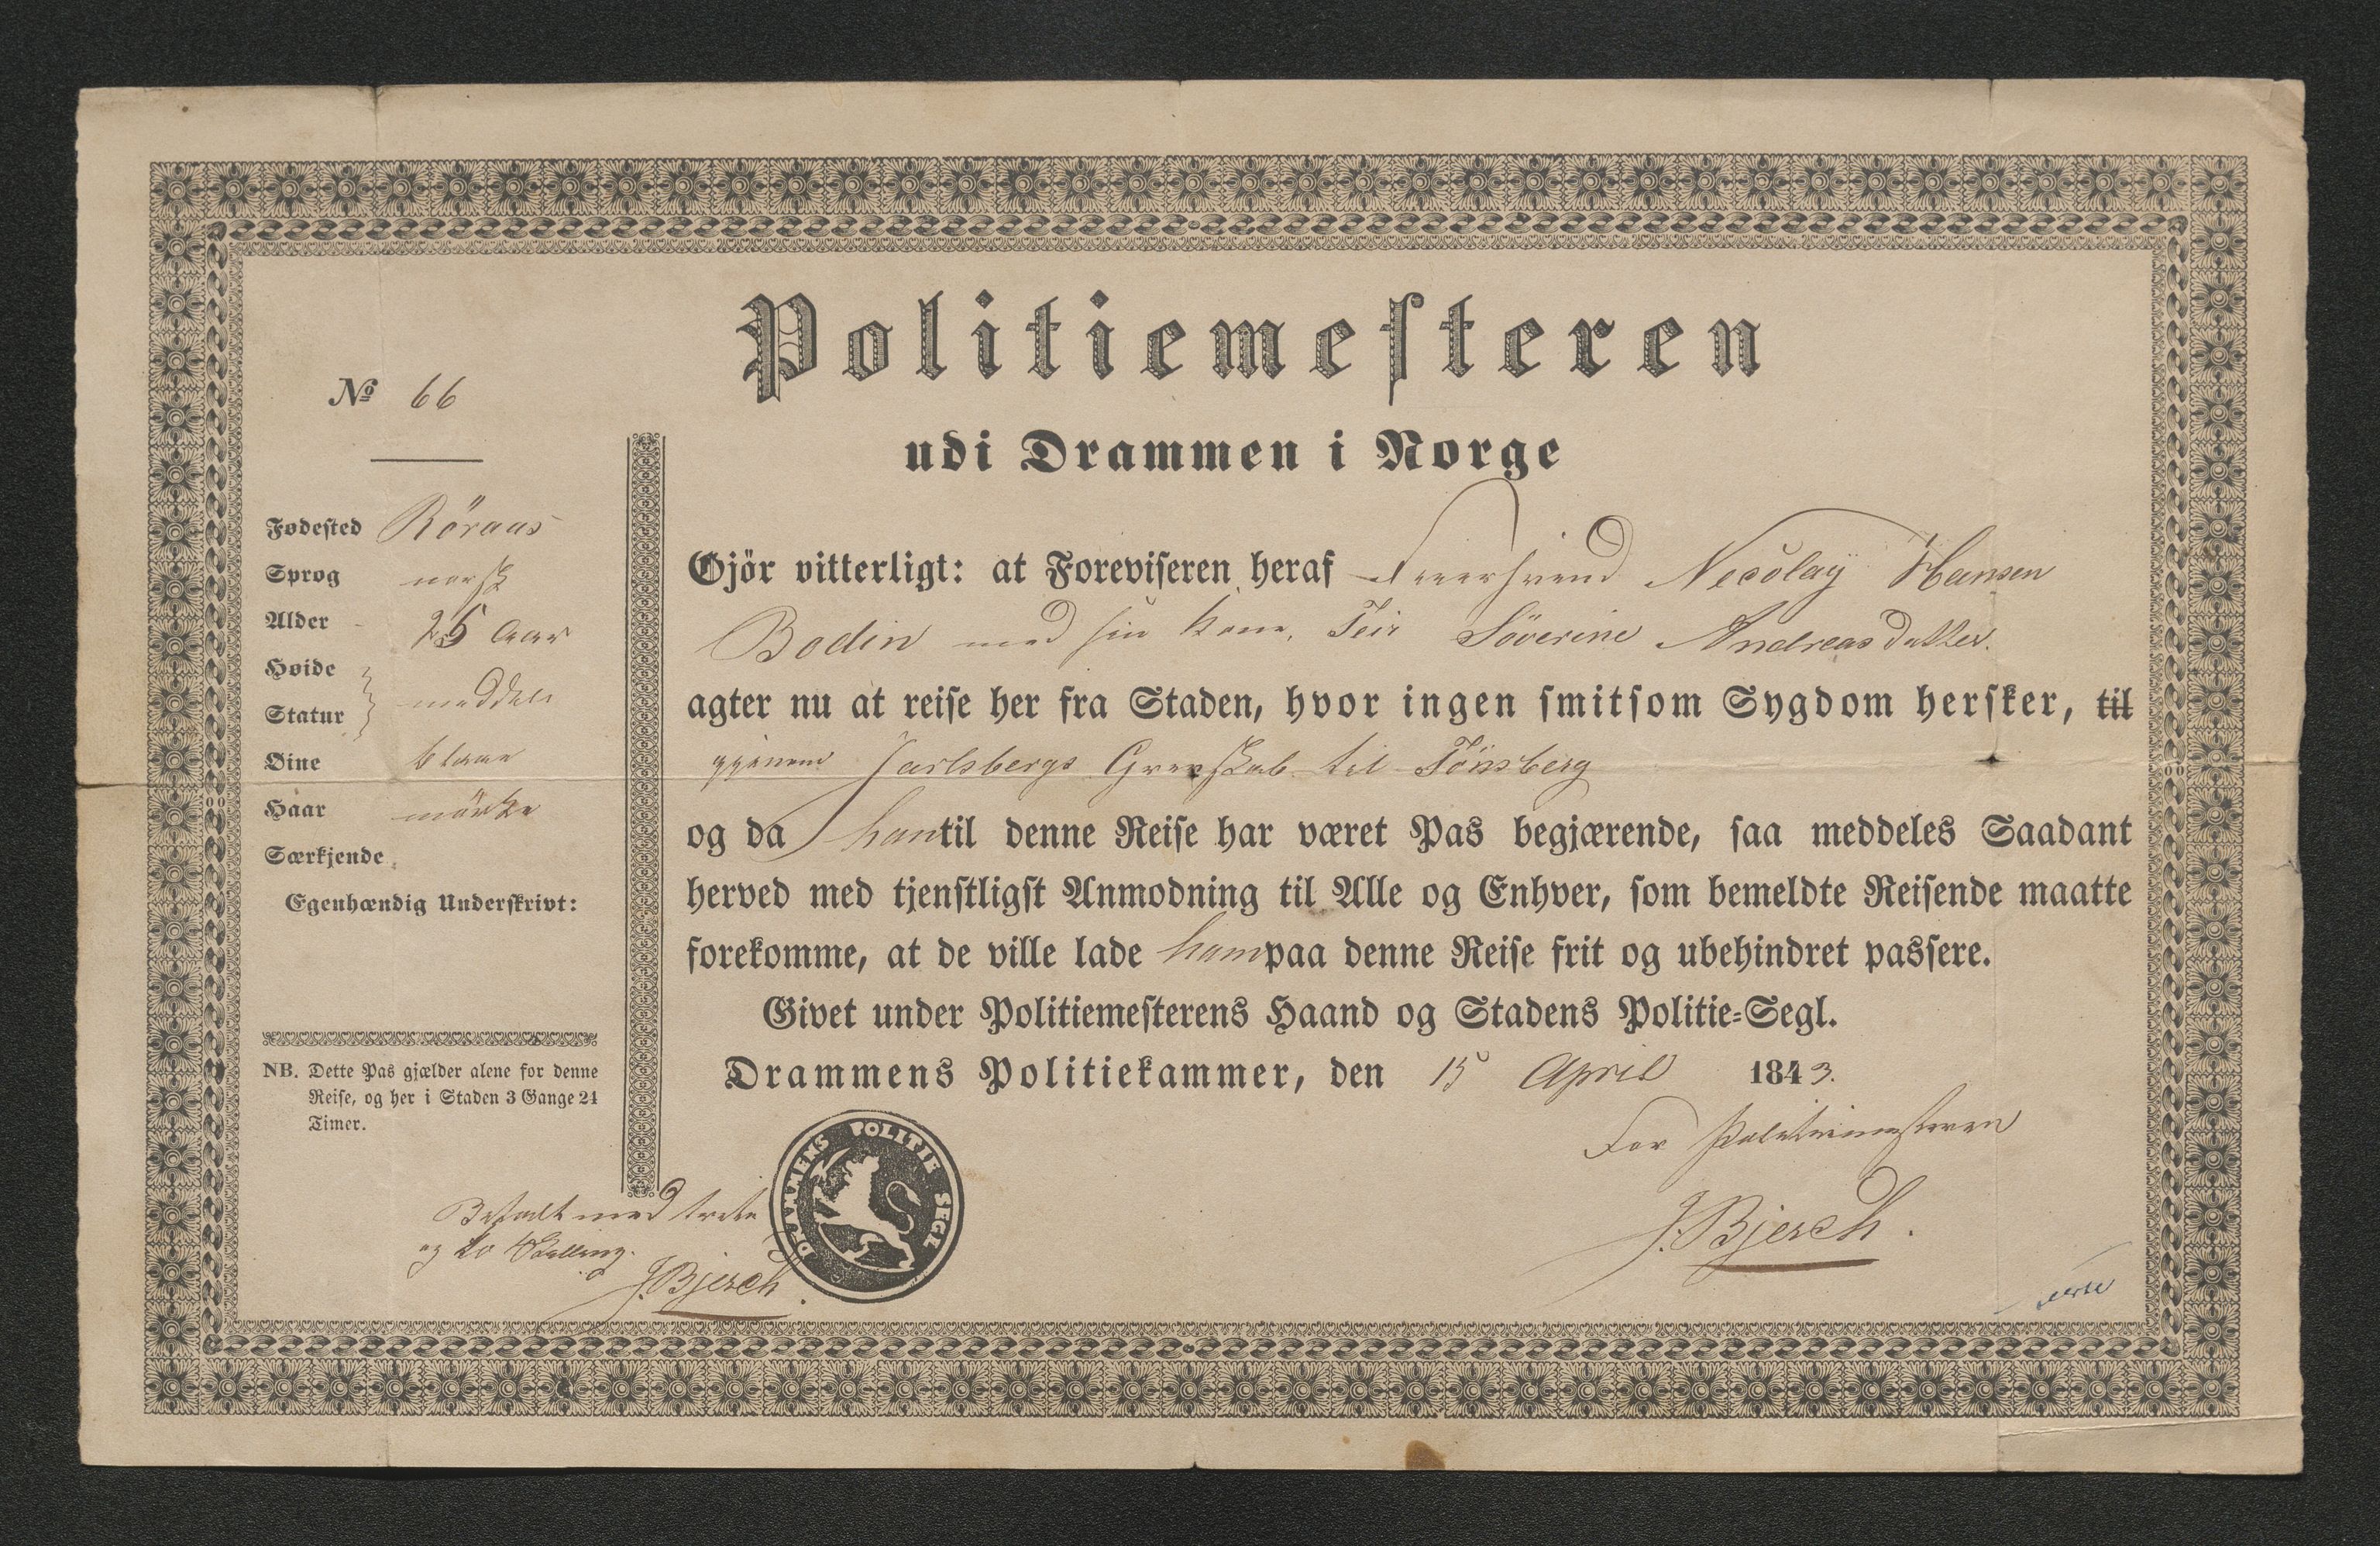 Politiemesteren
udi Drammen i Norge
No 66
Fødested Röraas
Sprog norsk
Alder 25 Aar
Høide
Statur middels
Øine blaae
Haar mörke
Særkjende
Egenhændig Underskrivt:
NB. Dette Pas gjælder alene for denne
Reise, og her i Staden 3 Gange 24
Timer.
Betalt med
og to Skilling.
J. Bjerch
Gjör vitterligt: at Foreviseren heraf Necolay Hansen
Bodin med sin Kone Søverine Andreasdatter.
agter nu at reise her fra Staden, hvor ingen smitsom Sygdom hersker, til
gjennem Jarlsbergs Grevskab til Tönsberg
og da han til denne Reise har været Pas begjærende, saa meddeles Saadant
herved med tjenstligst Anmodning til Alle og Enhver, som bemeldte Reisende maatte
forekomme, at de ville lade ham paa denne Reise frit og ubehindret passere.
Givet under Politiemesterens Haand og Stadens Politie-Segl.
Drammens Politiekammer, den 15 April 1843.
For Politiemesteren
J. Bjerch.
DRAMMENS POLITIE SEGL